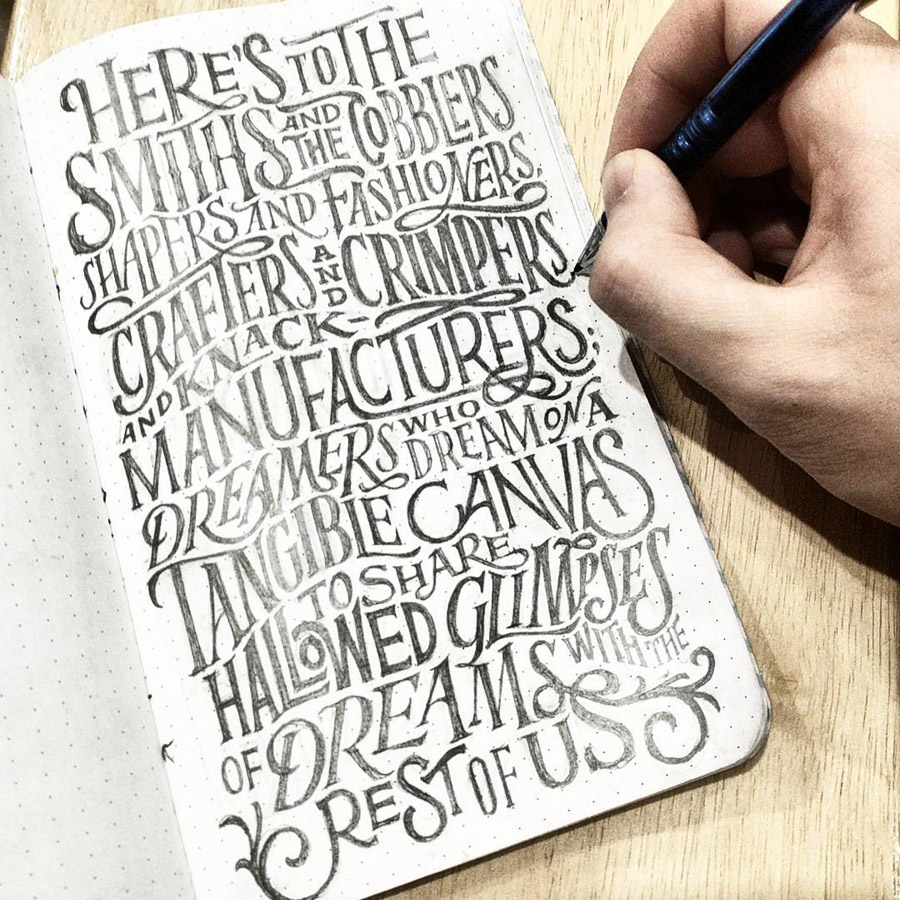 HERE'S TO THE
SMITHS AND THE COBBLERS
SHAPERS AND FASHIONERS.
CRAFTERS AND CRIMPERS
AND KNACK-
MANUFACTURERS:
DREAMERS WHO DREAM ON A
TANGIBLE CANVAS
TO SHARE
HALLOWED GLIMPSES
OF DREAMS WITH THE
REST OF US